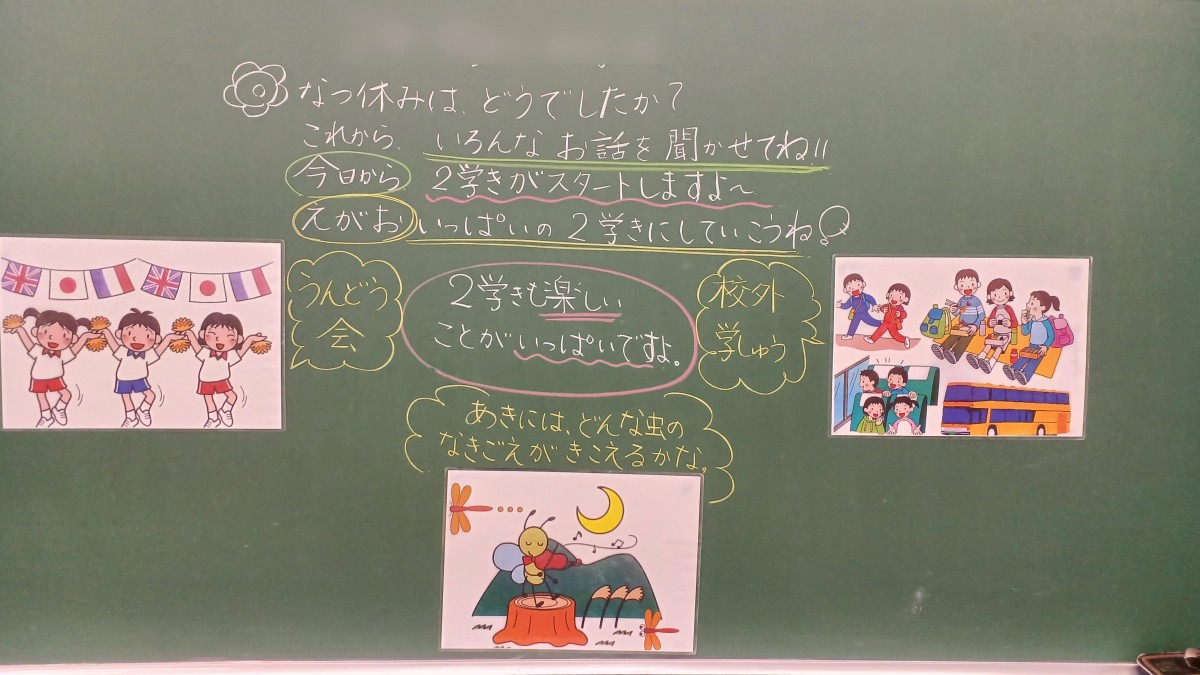 なつ休みは、どうでしたか？
これから、いろんなお話を聞かせてね!!
今日から 2学きがスタートしますよ〜
えがおいっぱいの 2学きにしていこうね!
うんどう
会
2学きも楽しい
ことがいっぱいですよ。
校外
学しゅう
あきには、どんな虫の
なきごえがきこえるかな。